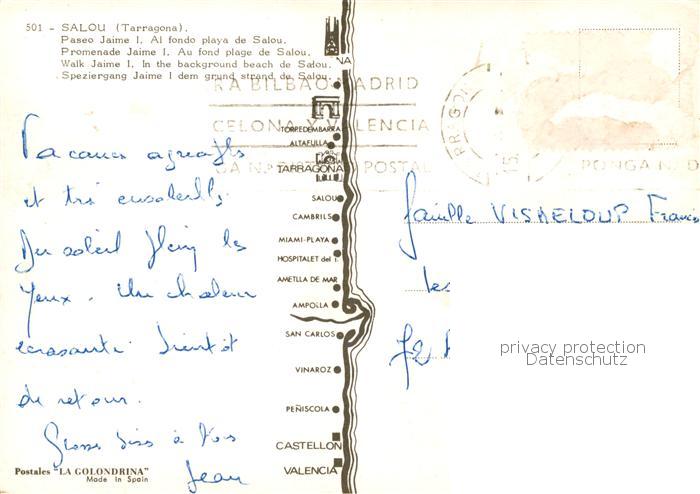 501 - SALOU (Tarragona).
Paseo Jaime I. Al fondo playa de Salou.
Promenade Jaime I. Au fond plage de Salou.
Walk Jaime I. In the background beach de Salou.
Speziergang Jaime I dem grund strand de Salou.
RA BILBAO MADRID
CELONA Y VALENCIA
POSTAL
PONGA
NA
TORREDEMBARRA
ALTAFULLA
TARRAGONA
SALOU
CAMBRILS
MIAMI-PLAYA
HOSPITALET del I.
AMETLLA DE MAR
AMPOLLA
SAN CARLOS
VINAROZ
PEÑISCOLA
CASTELLON
VALENCIA
Vacances agréables
et très ensoleillées
Du soleil plein les
yeux. Une chaleur
écrasante. Bientôt
de retour.
Grosses bises à tous
Jean
famille VISMELOUP Franc
les
privacy protection
Datenschutz
Postales "LA GOLONDRINA"
Made in Spain